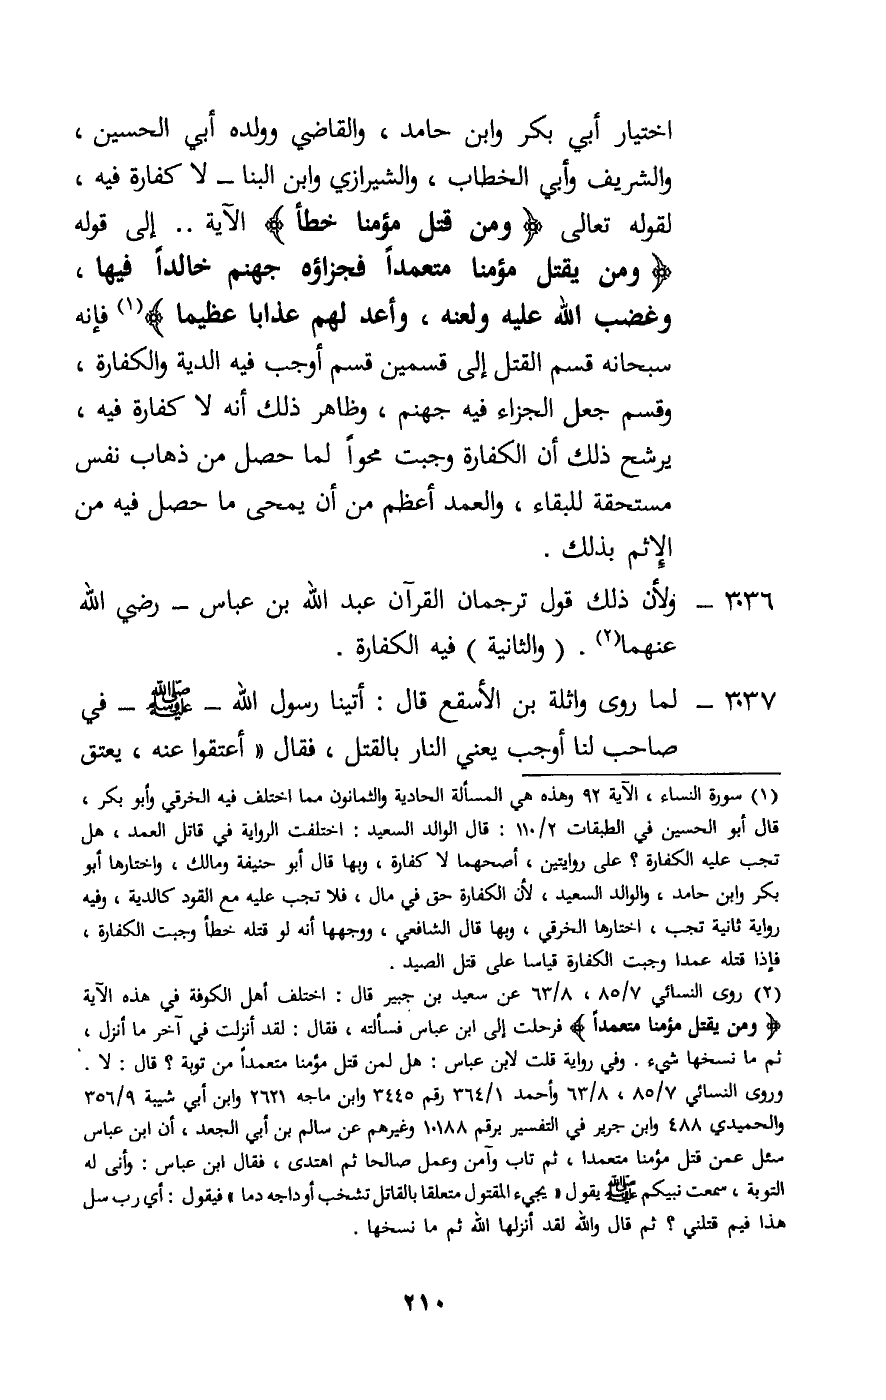 اختيار أبي بكر وابن حامد ، والقاضي وولده أبي الحسين ،
والشريف وأبي الخطاب ، والشيرازي وابن البنا – لا كفارة فيه ،
لقوله تعالى ﴿ ومن قتل مؤمنا خطأ ﴾ الآية .. إلى قوله
﴿ ومن يقتل مؤمنا متعمداً فجزاؤه جهنم خالداً فيها ،
وغضب الله عليه ولعنه ، وأعد لهم عذابا عظيما ﴾(١) فإنه
سبحانه قسم القتل إلى قسمين قسم أوجب فيه الدية والكفارة ،
وقسم جعل الجزاء فيه جهنم ، وظاهر ذلك أنه لا كفارة فيه ،
يرشح ذلك أن الكفارة وجبت محواً لما حصل من ذهاب نفس
مستحقة للبقاء ، والعمد أعظم من أن يمحى ما حصل فيه من
الإثم بذلك .
٣٠٣٦ – ولأن ذلك قول ترجمان القرآن عبد الله بن عباس – رضي الله
عنهما(٢) . ( والثانية ) فيه الكفارة .
٣٠٣٧ – لما روى واثلة بن الأسقع قال : أتينا رسول الله – ﷺ – في
صاحب لنا أوجب يعني النار بالقتل ، فقال « أعتقوا عنه ، يعتق
(١) سورة النساء ، الآية ٩٢ وهذه هي المسألة الحادية والثمانون مما اختلف فيه الخرقي وأبو بكر ،
قال أبو الحسين في الطبقات ١١٠/٢ : قال الوالد السعيد : اختلفت الرواية في قاتل العمد ، هل
تجب عليه الكفارة ؟ على روايتين ، أصحهما لا كفارة ، وبها قال أبو حنيفة ومالك ، واختارها أبو
بكر وابن حامد ، والوالد السعيد ، لأن الكفارة حق في مال ، فلا تجب عليه مع القود كالدية ، وفيه
رواية ثانية تجب ، اختارها الخرقي ، وبها قال الشافعي ، ووجهها أنه لو قتله خطأ وجبت الكفارة ،
فإذا قتله عمدا وجبت الكفارة قياسا على قتل الصيد .
(٢) روى النسائي ٨٥/٧ ، ٦٣/٨ عن سعيد بن جبير قال : اختلف أهل الكوفة في هذه الآية
﴿ ومن يقتل مؤمنا متعمداً ﴾ فرحلت إلى ابن عباس فسألته ، فقال : لقد أنزلت في آخر ما أنزل ،
ثم ما نسخها شيء . وفي رواية قلت لابن عباس : هل لمن قتل مؤمنا متعمداً من توبة ؟ قال : لا .
وروى النسائي ٨٥/٧ ، ٦٣/٨ وأحمد ٣٦٤/١ رقم ٣٤٤٥ وابن ماجه ٢٦٢١ وابن أبي شيبة ٣٥٦/٩
والحميدي ٤٨٨ وابن جرير في التفسير برقم ١٠١٨٨ وغيرهم عن سالم بن أبي الجعد ، أن ابن عباس
سئل عمن قتل مؤمنا متعمدا ، ثم تاب وآمن وعمل صالحا ثم اهتدى ، فقال ابن عباس : وأنى له
التوبة ، سمعت نبيكم ﷺ يقول « يجيء المقتول متعلقا بالقاتل تشخب أوداجه دما » فيقول : أي رب سل
هذا فيم قتلني ؟ ثم قال والله لقد أنزلها الله ثم ما نسخها .
٢١٠